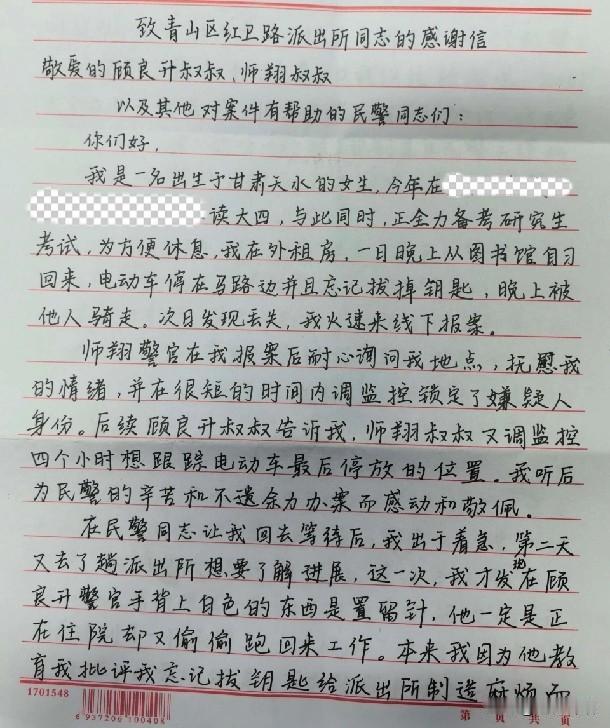 致青山区红卫路派出所同志的感谢信
敬爱的顾良升叔叔、师翔叔叔
以及其他对案件有帮助的民警同志们：
你们好，
我是一名出生于甘肃天水的女生，今年在
读大四，与此同时，正全力备考研究生
考试，为方便休息，我在外租房，一日晚上从图书馆自习
回来，电动车停在马路边并且忘记拔掉钥匙，晚上被
他人骑走。次日发现丢失，我火速来线下报案。
师翔警官在我报案后耐心询问我地点，抚慰我
的情绪，并在很短的时间内调监控锁定了嫌疑人
身份。后续顾良升叔叔告诉我，师翔叔叔又调监控
四个小时想跟踪电动车最后停放的位置。我听后
为民警的辛苦和不遗余力办案而感动和敬佩。
在民警同志让我回去等待后，我出于着急，第二天
又去了趟派出所想要了解进展，这一次，我才发现在顾
良升警官手背上白色的东西是置留针，他一定是正
在住院却又偷偷跑回来工作。本来我因为他教
育我批评我忘记拔钥匙给派出所制造麻烦而
1701548
6937206100408
第 页 共 页